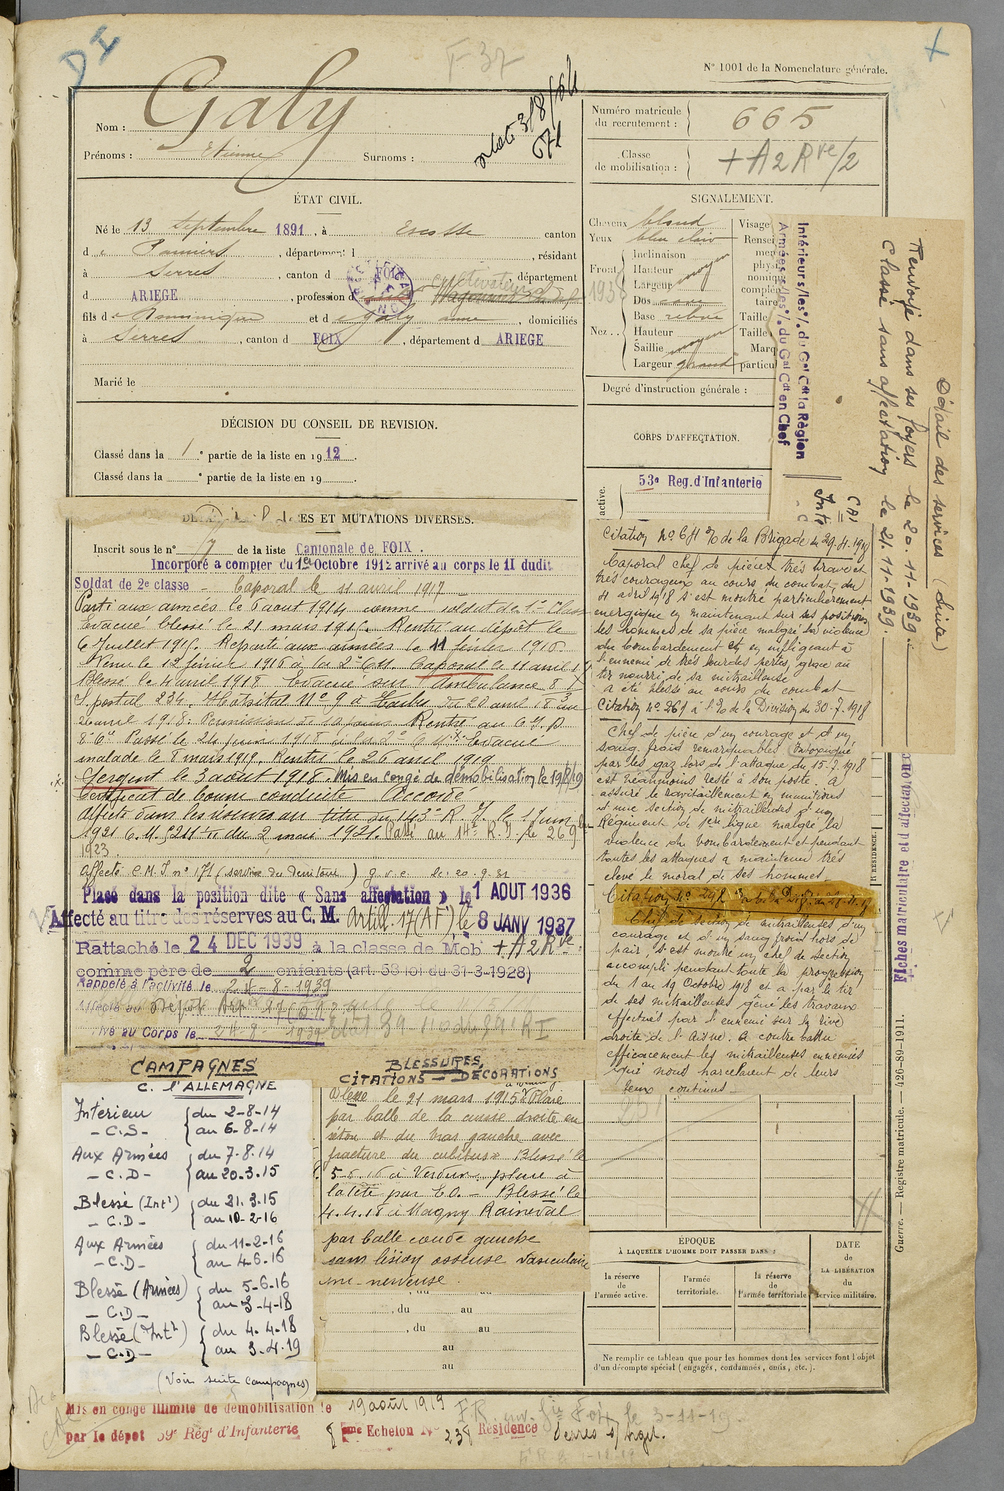 DI
F 37
N° 1001 de la Nomenclature générale.
Nom : Galy
Prénoms : Etienne Surnoms :
Numéro matricule du recrutement : 665
Classe de mobilisation : + A2 Rve/2
ÉTAT CIVIL.
Né le 13 Septembre 1891, à Escosse canton
d Pamiers, département d , résidant
à Serres, canton d FOIX, département
d ARIEGE, profession d cultivateur
fils de Dominique et de Galy Anne, domiciliés
à Serres, canton d FOIX, département d ARIEGE
Marié le
SIGNALEMENT.
Cheveux blond
Yeux bleu clair
Front
Inclinaison
Hauteur moyen
Largeur
Nez
Dos cave
Base relevée
Hauteur
Saillie moyen
Largeur grand
Visage
Taille
Taille
Degré d'instruction générale :
CORPS D'AFFECTATION.
active.
53e Reg. d'Infanterie
DÉCISION DU CONSEIL DE REVISION.
Classé dans la 1 e partie de la liste en 1912.
Classé dans la e partie de la liste en 19 .
ES ET MUTATIONS DIVERSES.
Inscrit sous le n° 7 de la liste Cantonale de FOIX.
Incorporé a compter du 1er Octobre 1912 arrivé au corps le 11 dudit
Soldat de 2e classe - Caporal le 11 avril 1917
Parti aux armées le 6 aout 1914 comme soldat de 1e Classe
Evacué blessé le 21 mars 1915. Rentré au dépôt le
6 juillet 1915. Reparti aux armées le 11 février 1916.
Venu le 12 février 1916 à la 2e C.M. Caporal le 11 avril 17
Blessé le 4 avril 1918 Evacué sur l'ambulance 8/
S. postal 234. Hôpital N° 9 à du 20 avril 18 au
26 avril 1918. Permission de 10 jours Rentré au
8e Cie Passé le 24 juin 1918 à la 2e C.M. Evacué
malade le 8 mars 1919. Rentré le 26 avril 1919
Sergent le 3 août 1918. Mis en congé de démobilisation le 19/8/19
Certificat de bonne conduite Accordé
Affecté dans les réserves au titre du 143e R.I. le 1 Juin
1921 C.M. 5211 du 2 mai 1921. Passé au 14e R.I. le 26 9bre
1923
Affecté C.M.I. n° 171 (service du territoire) g.v.c. le 20.9.31
Placé dans la position dite « Sans affectation » le 1 AOUT 1936
Affecté au titre des réserves au C. M. Artil. 17 (AF) le 8 JANV 1937
Rattaché le 24 DEC 1939 à la classe de Mob + A2 Rve.
comme père de 2 enfants (art. 58 loi du 31-3-1928)
Rappelé à l'activité le 24-8-1939
Affecté au Dépôt Art
Arrivé au Corps le 24-8-1939
Intérieurs/les°/. du Gal Cdt la Région
Armées/les°/. du Gal Cdt en Chef
Détail des services (suite)
Renvoyé dans ses foyers le 20.11.1939.
Classé sans affectation le 21.11.1939.
Citation N° 611 de la Brigade du 29.4.1918
Caporal chef de pièce très brave et
très courageux au cours du combat du
4 avril 1918 s'est montré particulièrement
énergique en maintenant sur ses positions
les hommes de sa pièce malgré la violence
du bombardement et en infligeant à
l'ennemi de très lourdes pertes, grâce au
tir nourri de sa mitrailleuse
a été blessé au cours du combat
Citation n° 261 à l'O de la Division du 30.7.1918
Chef de pièce d'un courage et d'un
sang froid remarquables. Intoxiqué
par les gaz lors de l'attaque du 15.7.1918
est néanmoins resté à son poste. A
assuré le ravitaillement en munitions
d'une section de mitrailleuses d'un
Régiment de 1ere ligne malgré la
violence du bombardement et pendant
toutes les attaques a maintenu très
élevé le moral de ses hommes.
Citation n°
Chef de section de mitrailleuses d'un
courage et d'un sang froid hors de
pair, s'est montré un chef de section
accompli pendant toute la progression
du 1 au 19 Octobre 1918 et a par le tir
de ses mitrailleuses gêné les travaux
effectués par l'ennemi sur la rive
droite de l'Aisne. A contre battu
efficacement les mitrailleuses ennemies
qui nous harcelaient de leurs
feux continus
CAMPAGNES
C. l'ALLEMAGNE
Intérieur - C.S. - du 2-8-14 au 6-8-14
Aux Armées - C.D - du 7-8-14 au 20.3.15
Blessé (Intr) - C.D - du 21.3.15 au 10-2-16
Aux Armées - C.D - du 11-2-16 au 4-6-16
Blessé (Armées) - C.D - du 5-6-16 au 3-4-18
Blessé (Intr) - C.D - du 4.4.18 au 3-4-19
(Voir suite campagnes)
BLESSURES,
CITATIONS — DÉCORATIONS
Blessé le 21 mars 1915 Plaie
par balle de la cuisse droite en
séton et du bras gauche avec
fracture du cubitus. Blessé le
5-6-16 à Verdun, plaie à
la tête par E.O. - Blessé le
4.4.18 à Magny Raineval
par balle coude gauche
sans lésion osseuse vasculaire
ni nerveuse.
, du au
, du au
au
au
ÉPOQUE
À LAQUELLE L'HOMME DOIT PASSER DANS :
la réserve de l'armée active.
l'armée territoriale.
la réserve de l'armée territoriale
DATE de LA LIBÉRATION du service militaire.
Ne remplir ce tableau que pour les hommes dont les services font l'objet
d'un décompte spécial (engagés, condamnés, omis, etc.).
Fiches matricu­laire et d'affectation
Guerre. — Registre matricule. — 426-89-1911.
Mis en congé illimité de démobilisation le 19 août 1919
par le dépôt 59e Regt d'Infanterie 8 eme Echelon N° 238 Résidence Serres s/ Arget.